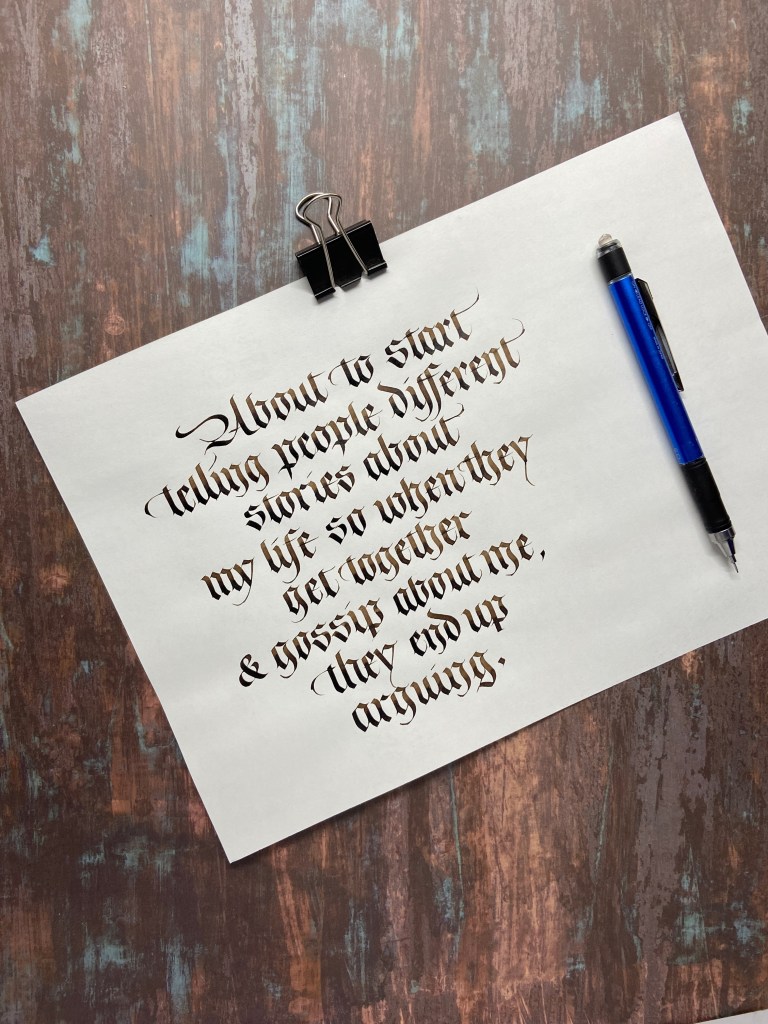 About to start
telling people different
stories about
my life so when they
get together
& gossip about me,
they end up
arguing.